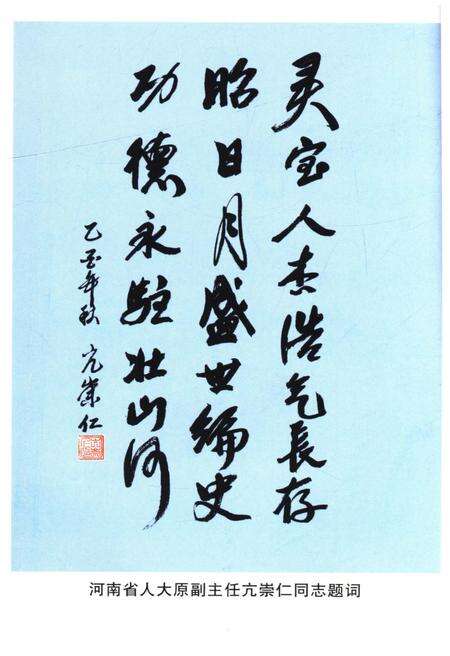 灵宝人杰浩气長存
昭日月盛世编史
功德永駐壮山河
乙酉年秋 亢崇仁
河南省人大原副主任亢崇仁同志题词